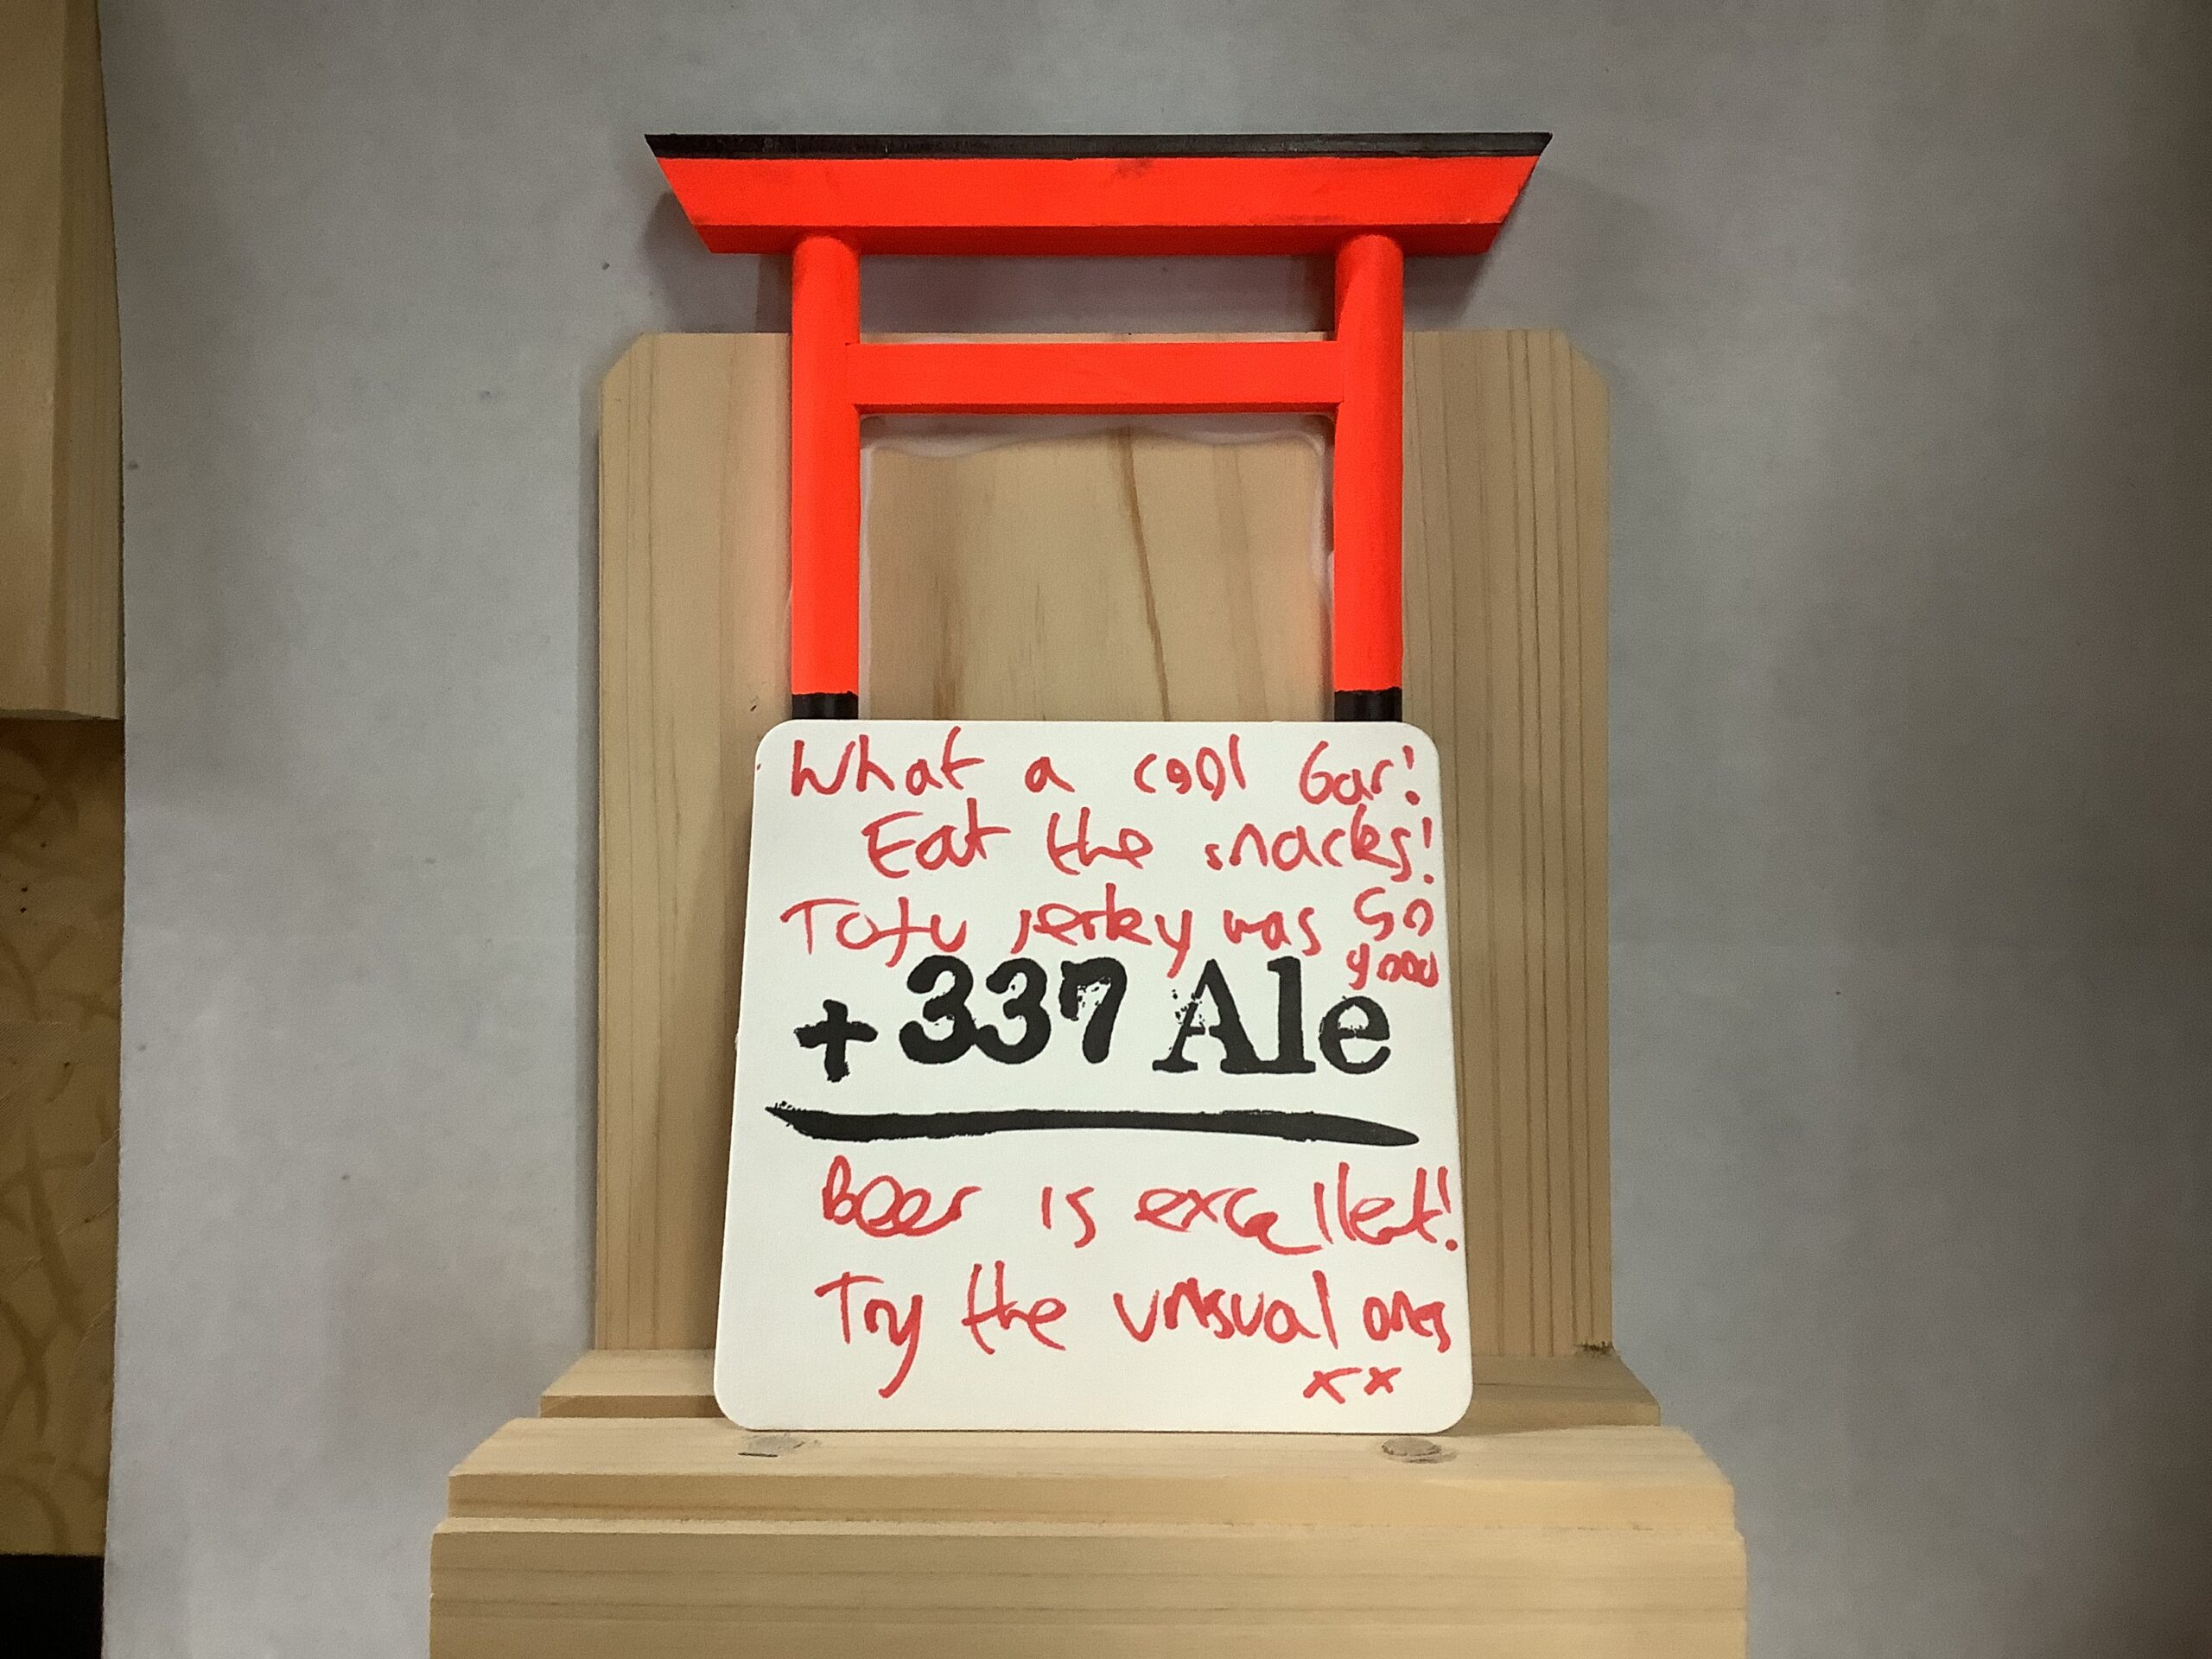 What a cool bar!
Eat the snacks!
Tofu jerky was so
good
+337 Ale
Beer is excellent!
Try the unusual ones
xx